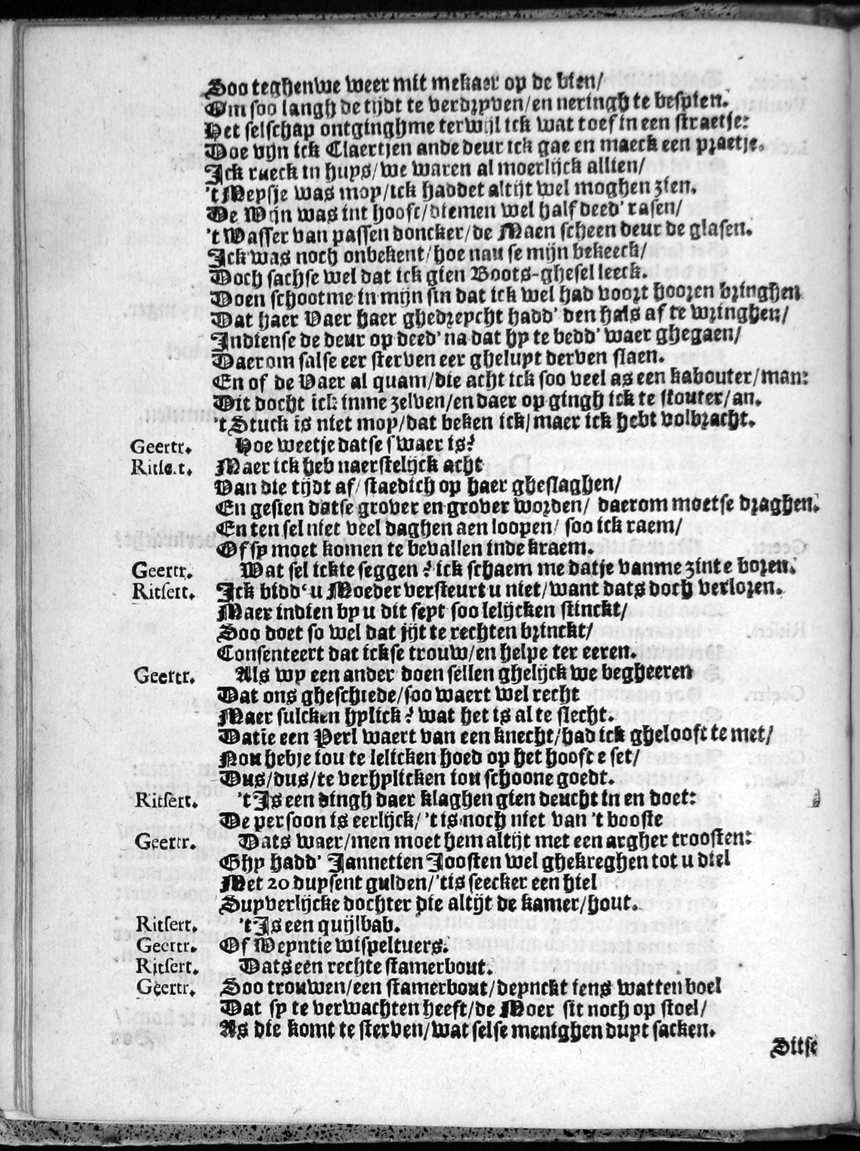 Soo teghenwe weer mit mekaer op de bien/
Om soo langh de tijdt te verdryven/en neringh te bespien.
Het selschap ontginghme terwijl ick wat toef in een straetje:
Doe vijn ick Claertjen ande deur ick gae en maeck een praetje.
Ick raeck in huys/we waren al moerlijck allien/
't Meysje was moy/ick haddet altijt wel moghen zien.
De Wijn was int hooft/diemen wel half deed' rasen/
't Wasser van passen doncker/de Maen scheen deur de glasen.
Ick was noch onbekent/hoe nau se mijn bekeeck/
Doch sachse wel dat ick gien Boots-ghesel leeck.
Doen schootme in mijn sin dat ick wel had voort hooren bringhen
Dat haer Vaer haer ghedreycht hadd' den hals af te wringhen/
Indiense de deur op deed' na dat hy te bedd' waer ghegaen/
Daerom salse eer sterven eer gheluyt derven slaen.
En of de Vaer al quam/die acht ick soo veel as een kabouter/man:
Dit docht ick inme zelven/en daer op gingh ick te stouter/an.
't Stuck is niet moy/dat beken ick/maer ick hebt volbracht.
Geertr. Hoe weetje datse swaer is?
Ritse.t. Maer ick heb naerstelijck acht
Van die tijdt af/staedich op haer gheslaghen/
En gesien datse grover en grover worden/ daerom moetse draghen.
En ten sel niet veel daghen aen loopen/ soo ick raem/
Of sy moet komen te bevallen inde kraem.
Geertr. Wat sel ickje seggen? ick schaem me datje vanme zinte boren.
Ritsert. Ick bidd' u Moeder versteurt u niet/want dats doch verloren.
Maer indien by u dit feyt soo lelijcken stinckt/
Soo doet so wel dat jijt te rechten brinckt/
Consenteert dat ickse trouw/en helpe ter eeren.
Geertr. Als wy een ander doen sellen ghelijck we begheeren
Dat ons gheschiede/soo waert wel recht
Maer sulcken hylick? wat het is al te slecht.
Datje een Perl waert van een knecht/had ick ghelooft te met/
Nou hebje jou te lelicken hoed op het hooft e set/
Dus/dus/te verhylicken jou schoone goedt.
Ritsert. 't Is een dingh daer klaghen gien deucht in en doet:
De persoon is eerlijck/'t is noch niet van 't booste
Geertr. Dats waer/men moet hem altijt met een argher troosten:
Ghy hadd' Jannetien Joosten wel ghekreghen tot u diel
Met 20 duysent gulden/'tis seecker een hiel
Suyverlijcke dochter die altijt de kamer/hout.
Ritsert. 't Is een quijlbab.
Geertr. Of Weyntie wispeltuers.
Ritsert. Dats een rechte stamerbout.
Geertr. Soo trouwen/een stamerbout/deynckt iens watten boel
Dat sy te verwachten heeft/de Moer sit noch op stoel/
As die komt te sterven/wat selse menighen duyt sacken.
Ditse